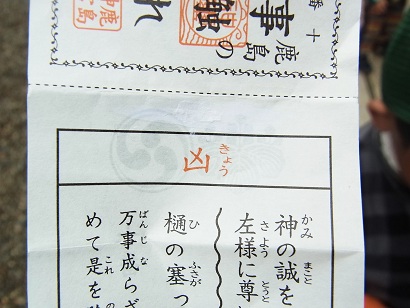 番十
鹿島の
事触れ
凶
きょう
神の誠を
かみ まこと
左様に尊
さよう とうと
樋の塞っ
ひ ふさが
万事成らざ
ばんじ な
めて是を
これ